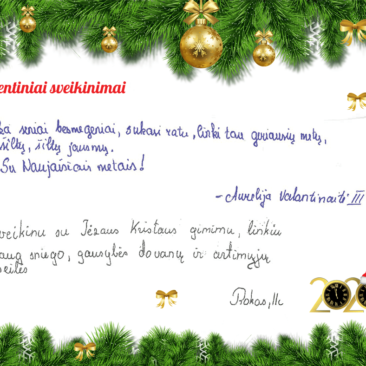 entiniai sveikinimai
seniai besmegeniai, sukasi ratu, linki tau geriausių metų,
šiltų, šiltų jausmų.
Su Naujaisiais metais!
– Aurelija Valantinaitė III
veikinu su Jėzaus Kristaus gimimu, linkiu
aug sniego, gausybės dovanų ir artimųjų
eilės
Rokas, IIc
202